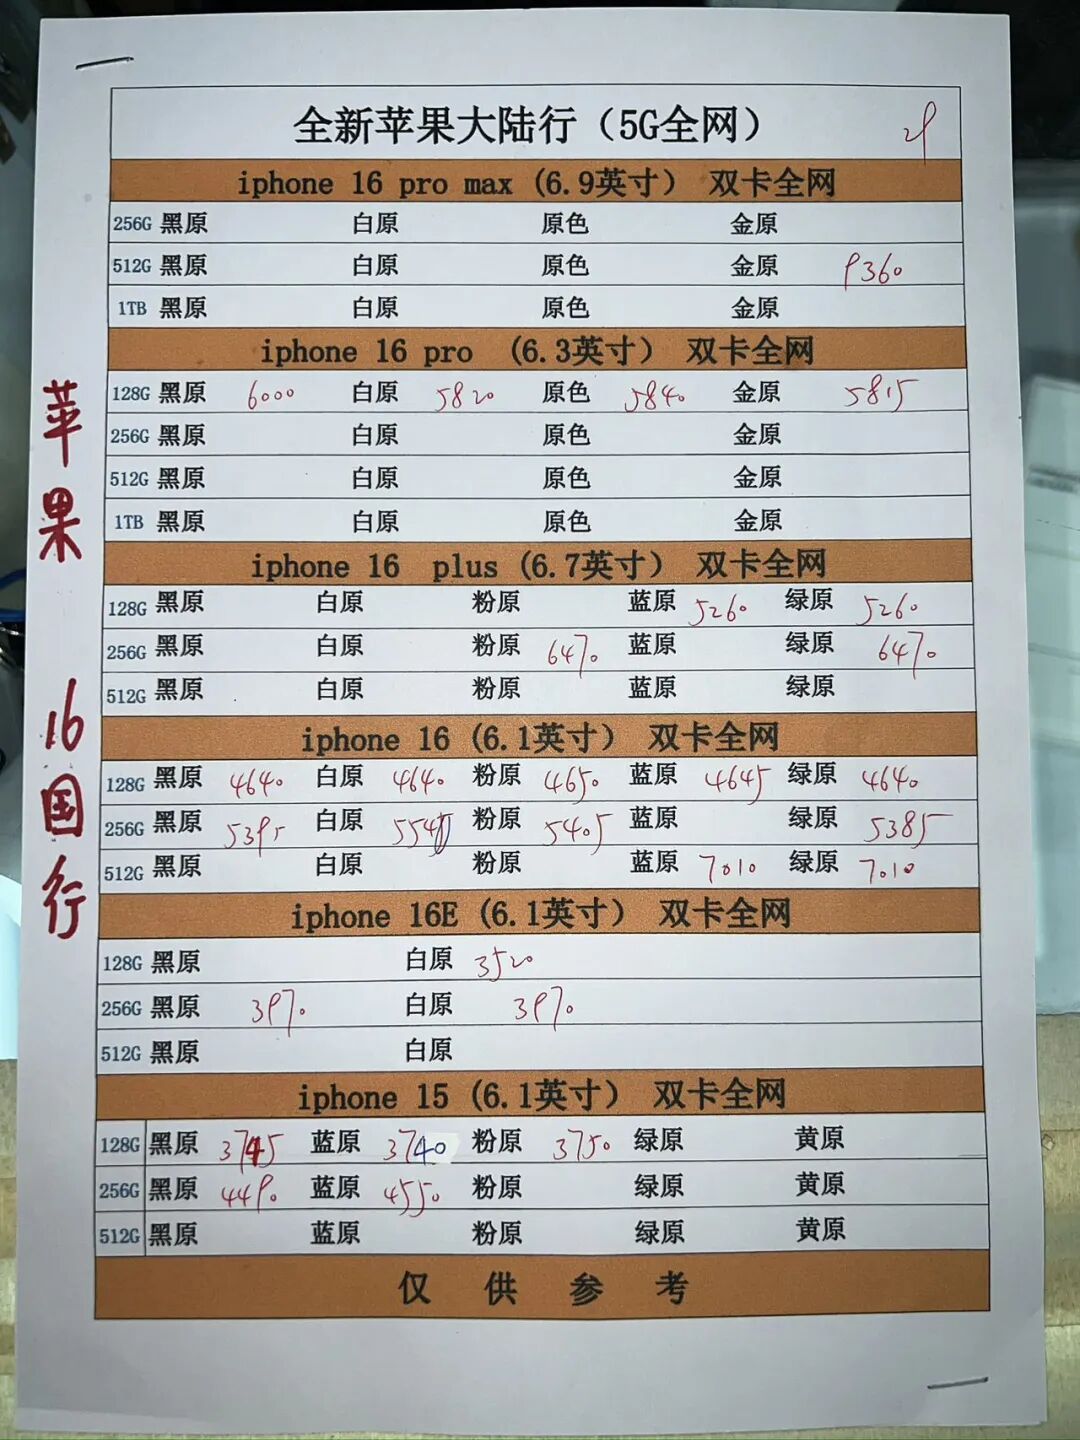 全新苹果大陆行（5G全网）
iphone 16 pro max (6.9英寸） 双卡全网
256G 黑原 白原 原色 金原
512G 黑原 白原 原色 金原 9360
1TB 黑原 白原 原色 金原
iphone 16 pro （6.3英寸） 双卡全网
128G 黑原 6000 白原 5820 原色 5840 金原 5815
256G 黑原 白原 原色 金原
512G 黑原 白原 原色 金原
1TB 黑原 白原 原色 金原
iphone 16 plus (6.7英寸） 双卡全网
128G 黑原 白原 粉原 蓝原 5260 绿原 5260
256G 黑原 白原 粉原 6470 蓝原 绿原 6470
512G 黑原 白原 粉原 蓝原 绿原
iphone 16 (6.1英寸） 双卡全网
128G 黑原 4640 白原 4640 粉原 4650 蓝原 4645 绿原 4640
256G 黑原 5395 白原 粉原 5405 蓝原 绿原 5385
512G 黑原 白原 粉原 蓝原 7010 绿原 7010
iphone 16E (6.1英寸） 双卡全网
128G 黑原 白原 3520
256G 黑原 3970 白原 3970
512G 黑原 白原
iphone 15 (6.1英寸） 双卡全网
128G 黑原 3745 蓝原 3740 粉原 3750 绿原 黄原
256G 黑原 4490 蓝原 4550 粉原 绿原 黄原
512G 黑原 蓝原 粉原 绿原 黄原
仅供参考
苹果 16国行